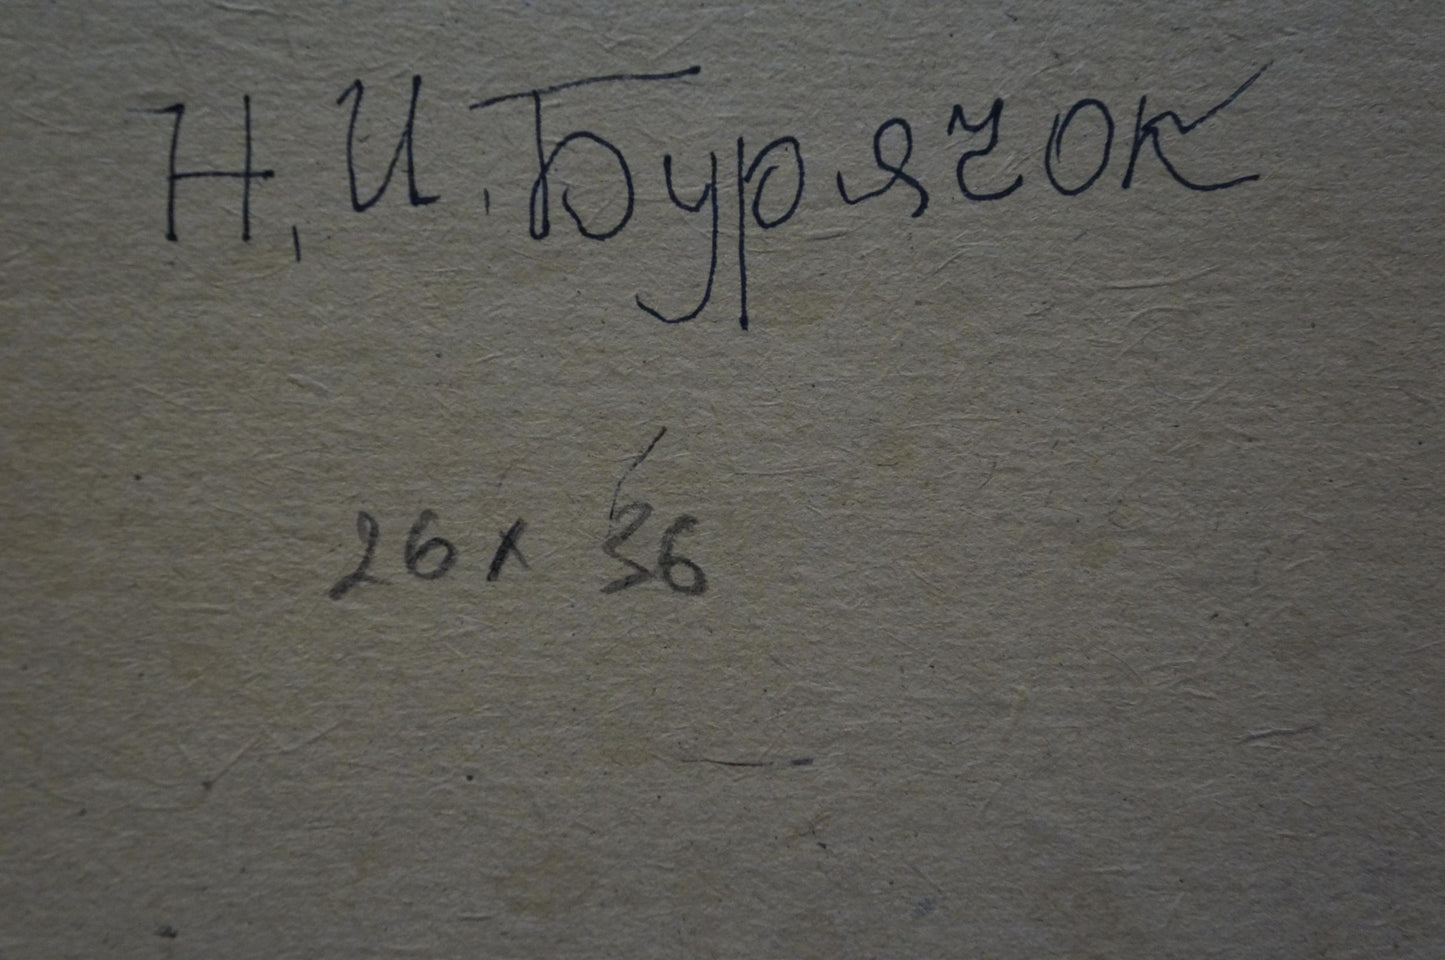 Н.И.Бурячок
26х36